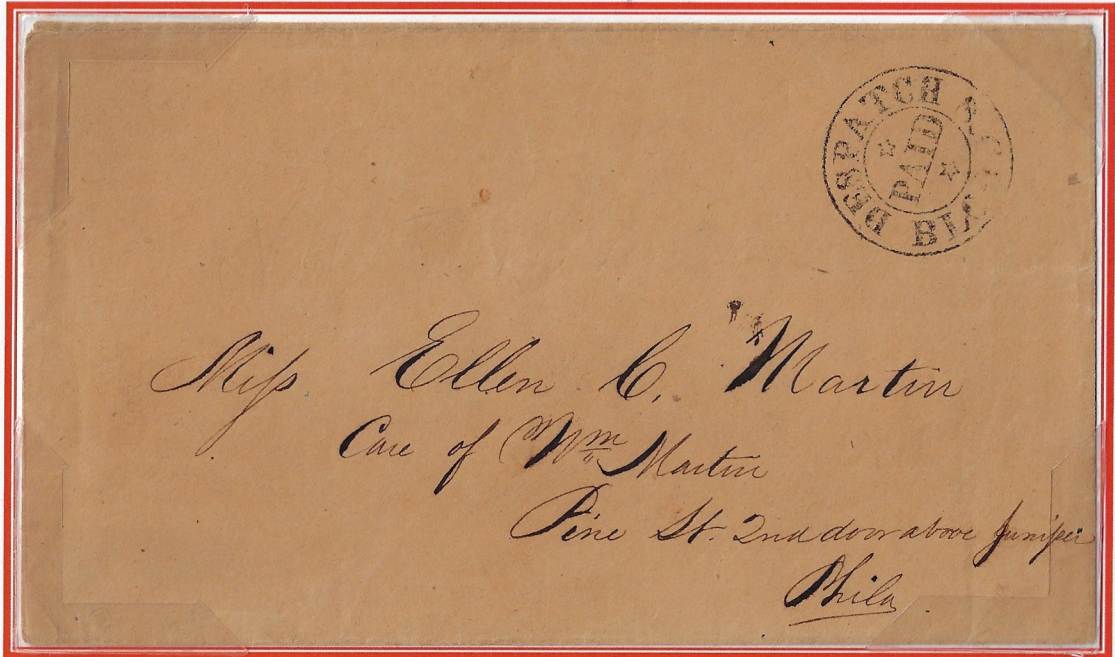 DESPATCH
PAID
Miſs Ellen C. Martin
Care of Wm Martin
Pine St. 2nd door above Juniper
Phila